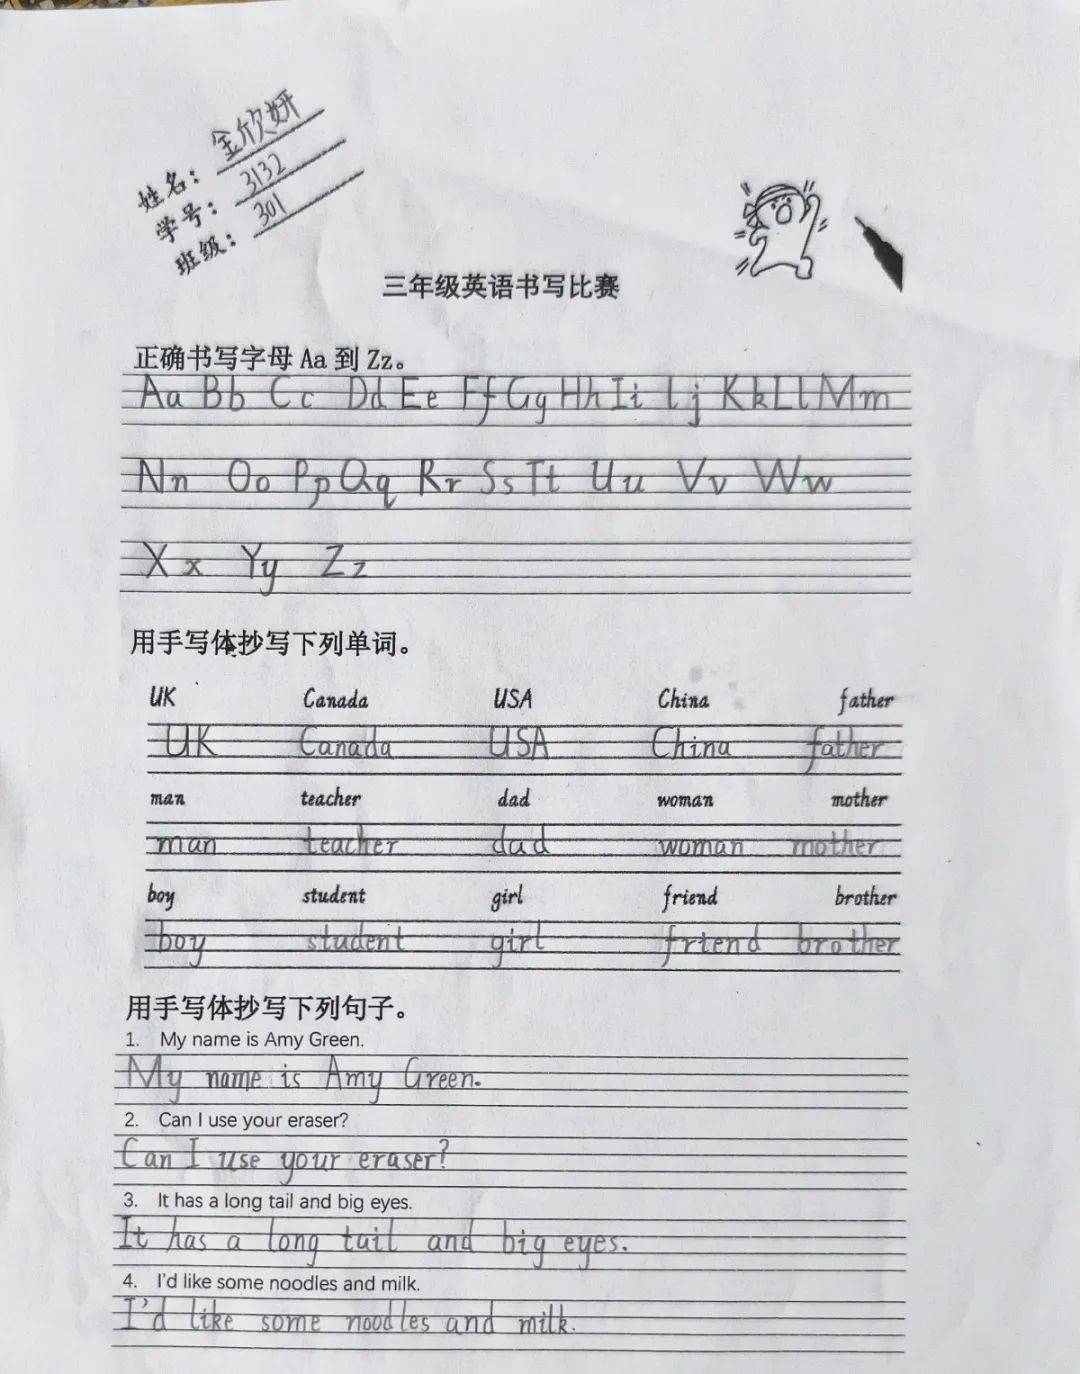 姓名：金欣妍
学号：3132
班级：301
三年级英语书写比赛
正确书写字母 Aa 到 Zz。
Aa Bb Cc Dd Ee Ff Gg Hh Ii Jj Kk Ll Mm
Nn Oo Pp Qq Rr Ss Tt Uu Vv Ww
Xx Yy Zz
用手写体抄写下列单词。
UK Canada USA China father
UK Canada USA China father
man teacher dad woman mother
man teacher dad woman mother
boy student girl friend brother
boy student girl friend brother
用手写体抄写下列句子。
1. My name is Amy Green.
My name is Amy Green.
2. Can I use your eraser?
Can I use your eraser?
3. It has a long tail and big eyes.
It has a long tail and big eyes.
4. I'd like some noodles and milk.
I'd like some noodles and milk.